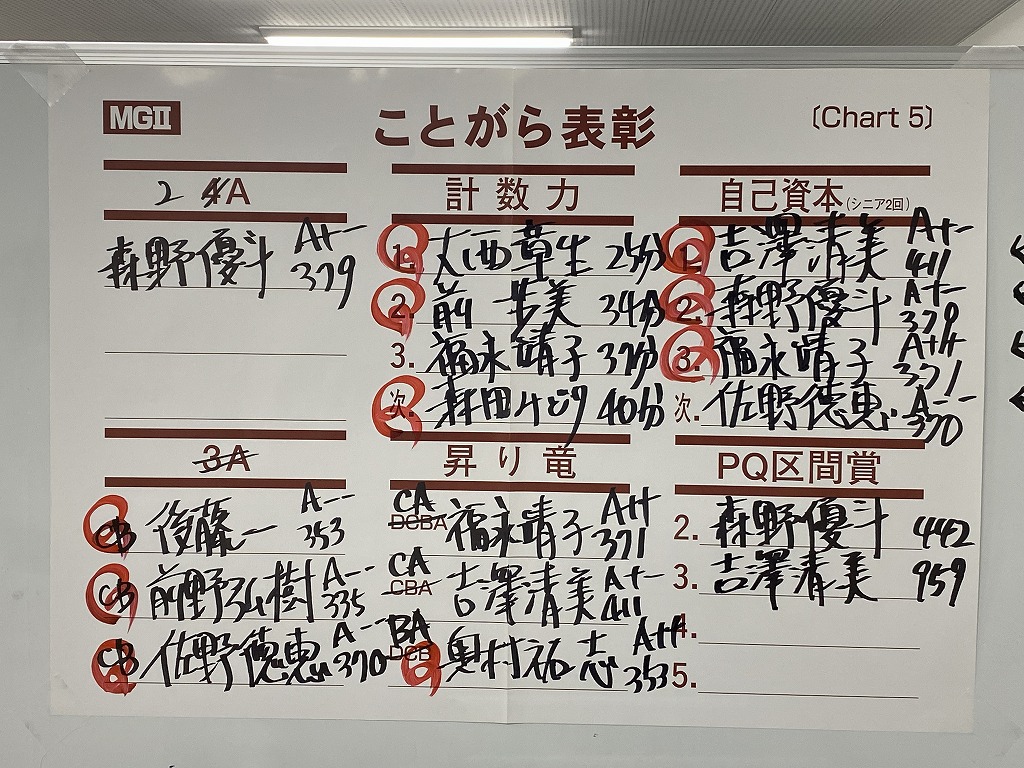 MGII
ことがら表彰
〔Chart 5〕
2 4A
森野優斗 A+- 379
計数力
1. 大西章生 25分
2. 前 美 34分
3. 福永靖子 37分
次. 森田みどり 40分
自己資本(シニア2回)
1. 吉澤清美 A+- 411
2. 森野優斗 A+- 379
3. 福永靖子 A++ 371
次. 佐野徳恵 A-- 370
3A
CB 後藤一 A-- 353
CB 前野弘樹 A-- 335
CB 佐野徳恵 A-- 370
昇り竜
CA
DCBA 福永靖子 A++ 371
CA
CBA 吉澤清美 A+- 411
BA
DCB 奥村祐志 A++ 353
PQ区間賞
2. 森野優斗 442
3. 吉澤清美 959
4.
5.